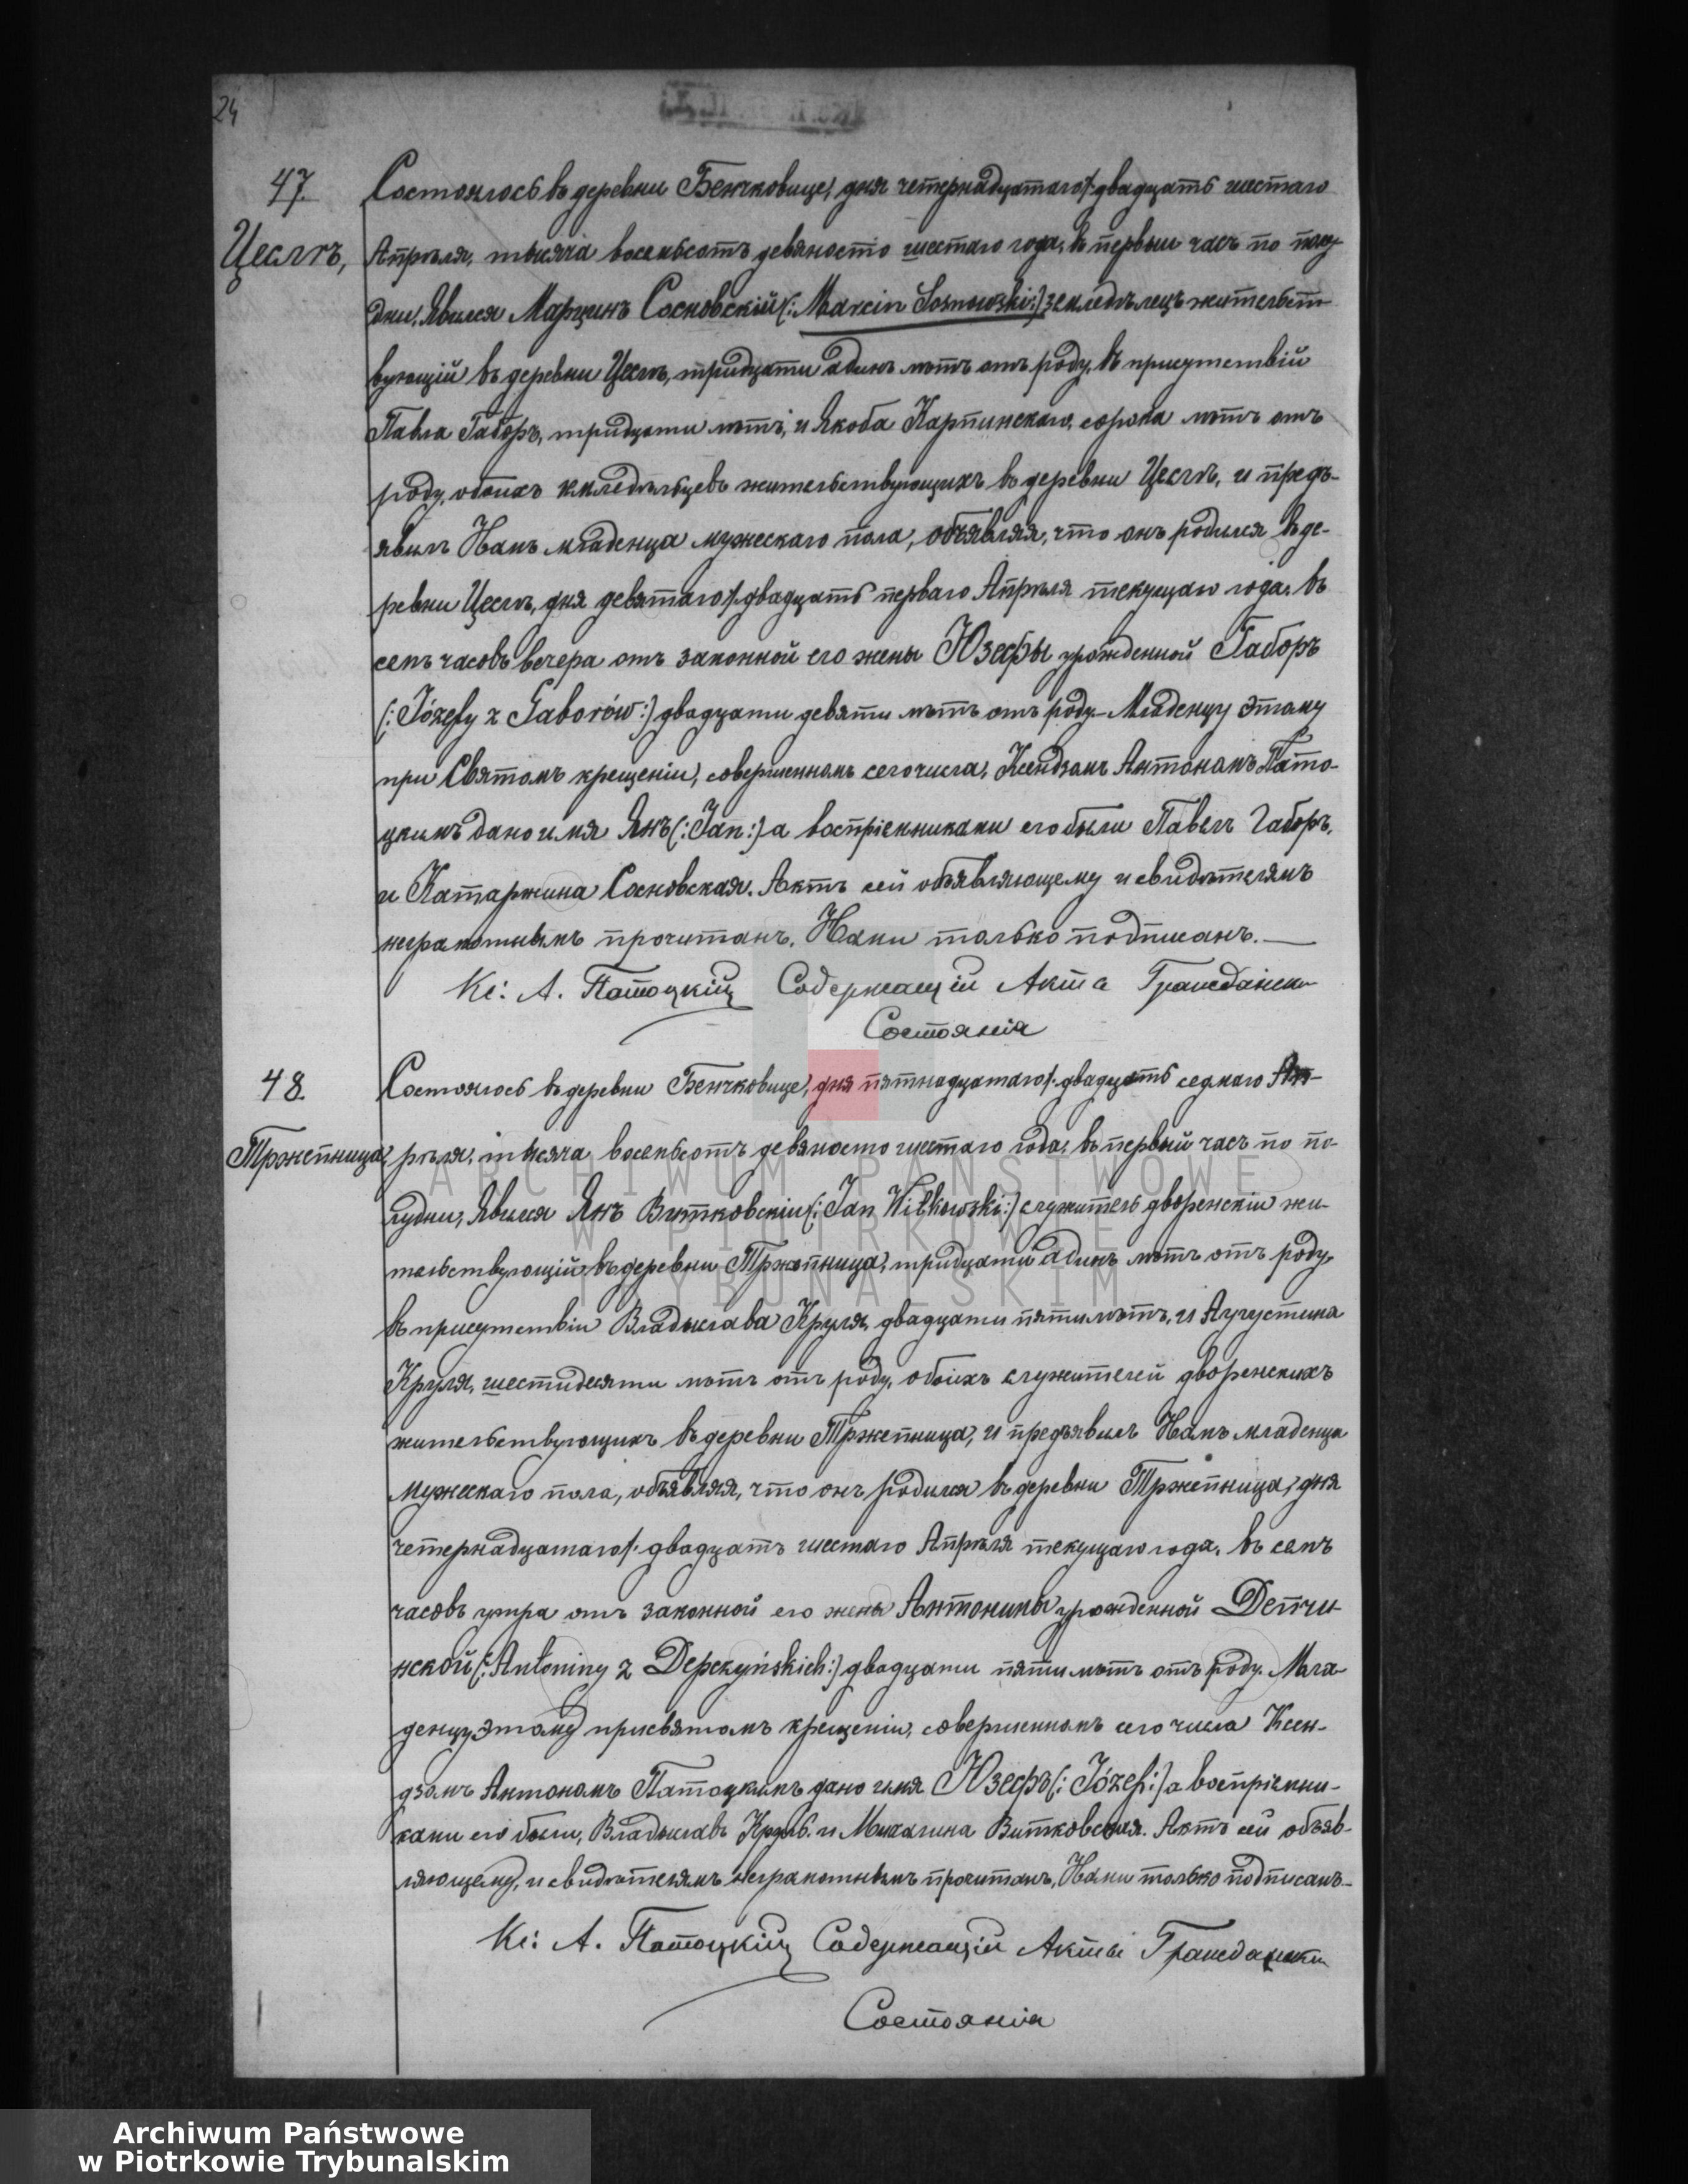 24
47.
Цесле,
Состоялось въ деревни Бенчковице, дня четернадцатаго/: двадцать шестаго
Апрѣля, тысяча восемьсотъ девяносто шестаго года, въ первый часъ по полу
дни, Явился Марцинъ Сосновскій (: Marcin Sosnowski:) земледѣлецъ жительст-
вующій въ деревни Цесле, тридцати одинъ лѣтъ отъ роду, въ присутствій
Павла Габоръ, тридцати лѣтъ, и Якоба Карпинскаго, сорока лѣтъ отъ
роду, обоихъ земледѣльцевъ жительствующихъ въ деревни Цесле, и предъ-
явилъ Намъ младенца мужескаго пола, объявляя, что онъ родился въ де-
ревни Цесле, дня девятаго/: двадцать перваго Апрѣля текущаго года, въ
семъ часовъ вечера отъ законной его жены Юзефы урожденной Габоръ
(: Józefy z Gaborów:) двадцати девяти лѣтъ отъ роду - Младенцу этому
при Святомъ крещеніи, совершенномъ сего числа, Ксендзомъ Антономъ Пато-
цкимъ дано имя Янъ (: Jan:) а воспріемниками его были Павелъ Габоръ,
и Катаржина Сосновская. Актъ сей объявляющему и свидѣтелямъ
неграмотнымъ прочитанъ, Нами только подписанъ. —
Кс: А. Патоцкій Содержащій Акта Гражданск
Состоянія
48.
Тржепница,
Состоялось въ деревни Бенчковице, дня пятнадцатаго/: двадцать седмаго Ап-
рѣля, тысяча восемьсотъ девяносто шестаго года, въ первый часъ по по-
лудни, Явился Янъ Витковскій (: Jan Witkowski:) служитель дворенскій жи-
тельствующій въ деревни Тржепница, тридцати одинъ лѣтъ отъ роду,
въ присутствіи Владыслава Круля, двадцати пяти лѣтъ, и Аугустина
Круля, шестидесяти лѣтъ отъ роду, обоихъ служителей дворенскихъ
жительствующихъ въ деревни Тржепница, и предъявилъ Намъ младенца
мужескаго пола, объявляя, что онъ родился въ деревни Тржепница, дня
четернадцатаго/: двадцать шестаго Апрѣля текущаго года, въ семъ
часовъ утра отъ законной его жены Антонины урожденной Депчи-
нской (: Antoniny z Depczyńskich:) двадцати пяти лѣтъ отъ роду. Мла-
денцу этому при святомъ крещеніи, совершенномъ сего числа Ксен-
дзомъ Антономъ Патоцкимъ дано имя Юзефъ (: Józef:) а воспріемни-
ками его были, Владыславъ Круль и Михалина Витковская. Актъ сей объяв-
ляющему, и свидѣтелямъ неграмотнымъ прочитанъ, Нами только подписанъ —
Кс: А. Патоцкій Содержащій Акты Гражданск
Состоянія
ARCHIWUM PAŃSTWOWE
W PIOTRKOWIE
TRYBUNALSKIM
Archiwum Państwowe
w Piotrkowie Trybunalskim